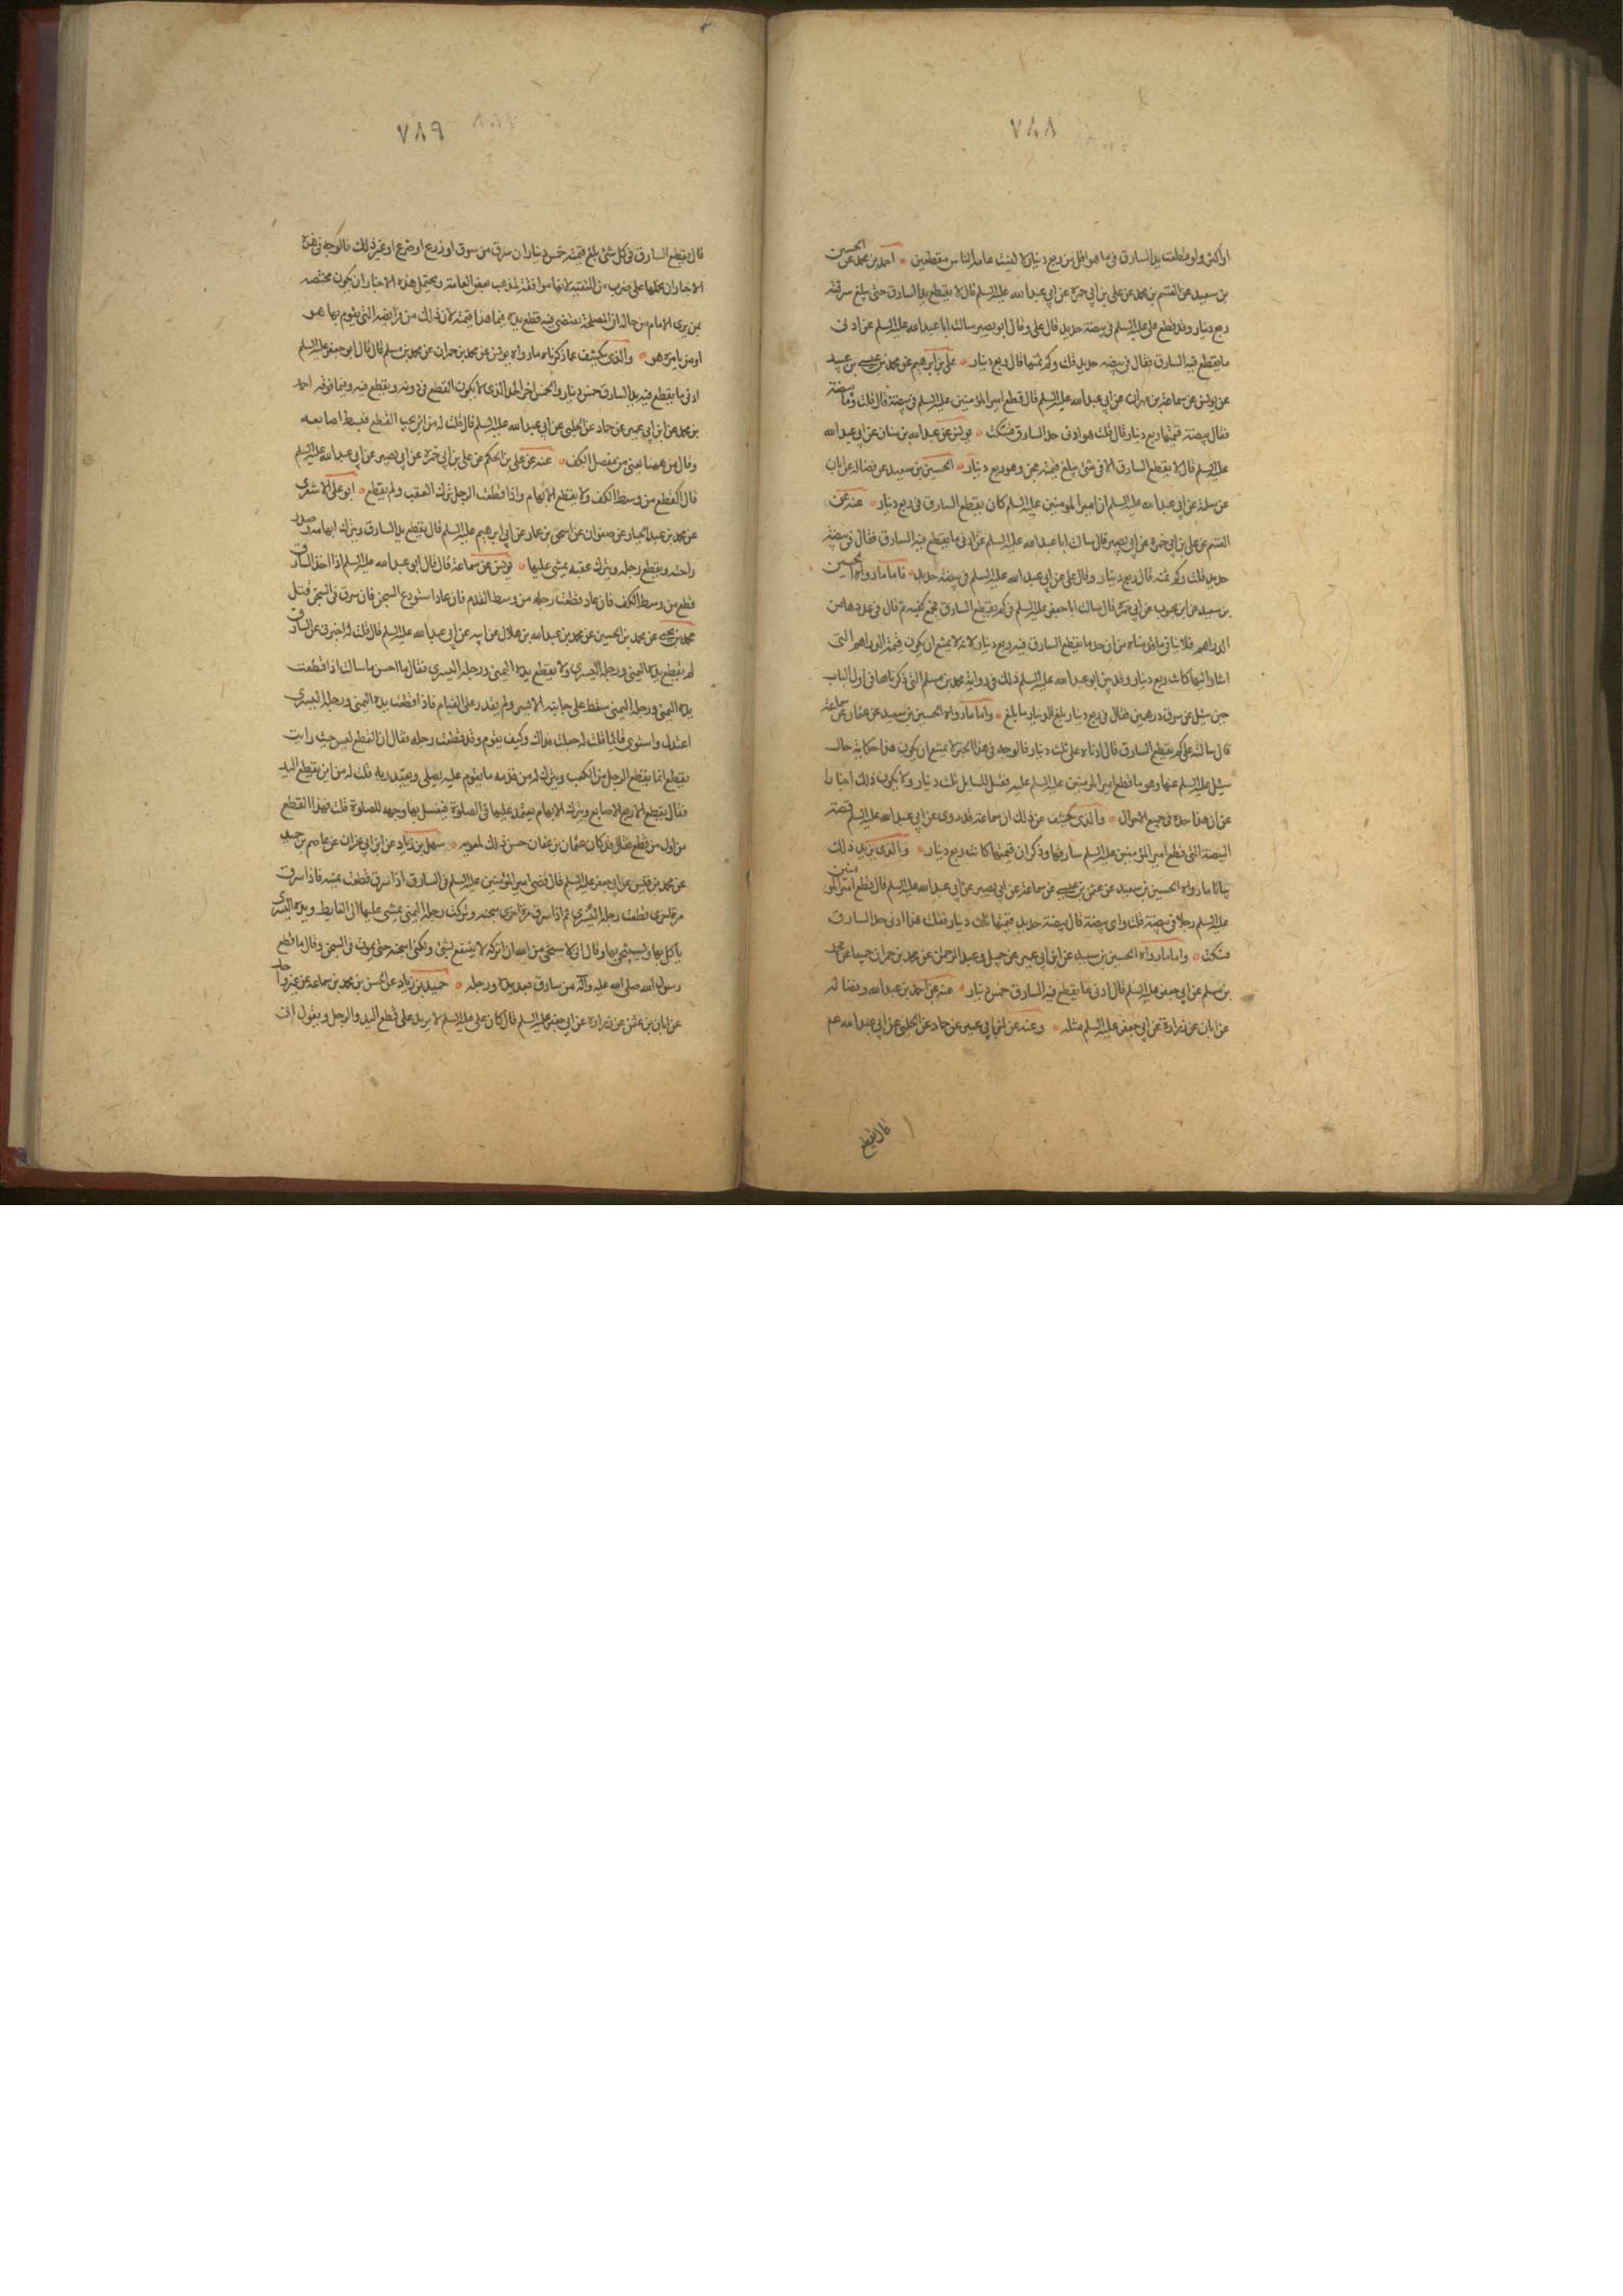 ٧٨٨
او اكثر ولو قطعت يد السارق فى ما هو اقل من ربع دينار لالفيت عامة الناس مقطعين احمد بن محمد عن الحسين
بن سعيد عن القسم بن محمد عن على بن ابى حمزه عن ابى عبد الله عليه السلم قال لا يقطع يد السارق حتى يبلغ سرقته
ربع دينار وقد قطع على عليه السلم فى بيضة حديد قال على وقال ابو بصير سالت ابا عبد الله عليه السلم عن ادنى
ما يقطع فيه السارق فقال فى بيضه حديد قلت وكم ثمنها قال ربع دينار على بن ابرهيم عن محمد بن عيسى بن عبيد
عن يونس عن سماعة بن مهران عن ابى عبد الله عليه السلم قال قطع امير المؤمنين عليه السلم فى بيضة قال قلت وما بيضة
فقال بيضة قيمتها ربع دينار قال قلت هو ادنى حد السارق فسكت يونس عن عبد الله بن سنان عن ابى عبد الله
عليه السلم قال لا يقطع السارق الا فى شئ يبلغ قيمته مجن وهو ربع دينار الحسين بن سعيد عن فضاله عن ابان
عن سلمة عن ابى عبد الله عليه السلم ان امير المؤمنين عليه السلم كان يقطع السارق فى ربع دينار عنه عن
القسم عن على بن ابى حمزه عن ابى بصير قال سالت ابا عبد الله عليه السلم عن ادنى ما يقطع فيه السارق فقال فى بيضة
حديد قلت وكم ثمنه قال ربع دينار وقال على عن ابى عبد الله عليه السلم فى بيضة حديد فاما ما رواه الحسين
بن سعيد عن ابن محبوب عن ابى حمزه قال سالت ابا جعفر عليه السلم فى كم يقطع السارق فجمع كفيه ثم قال فى عددها من
الدراهم فلا ينافى ما قدمناه من ان حد ما يقطع السارق فيه ربع دينار لانه لا يمتنع ان يكون قيمة الدراهم التى
اشار اليها كانت ربع دينار وقد بين ابو عبد الله عليه السلم ذلك فى رواية محمد بن مسلم التى ذكرناها فى اول الباب
حين سئل عن سرق درهمين فقال فى ربع دينار بلغ الدينار ما بلغ واما ما رواه الحسين بن سعيد عن عثمان عن سماعة
قال سالته على كم يقطع السارق قال ادناه على ثلث دينار فالوجه فى هذا الخبر لا يمتنع ان يكون هذا حكاية حال
سئل عليه السلم عنها وهو ما قطع امير المؤمنين عليه السلم عليه فقال للسايل ثلث دينار ولا يكون ذلك اخبارا
عن ان هذا حده فى جميع الاحوال والذى يكشف عن ذلك ان سماعة قد روى عن ابى عبد الله عليه السلم قصة
البيضة التى قطع امير المؤمنين عليه السلم سارقها وذكر ان قيمتها كانت ربع دينار والذى يزيد ذلك
بيانا ما رواه الحسين بن سعيد عن عثمن بن عيسى عن سماعة عن ابى بصير عن ابى عبد الله عليه السلم قال قطع امير المومنين
عليه السلم رجلا فى بيضة قلت واى بيضة قال بيضة حديد قيمتها ثلث دينار فقلت هذا ادنى حد السارق
فسكت واما ما رواه الحسين بن سعيد عن ابن ابى عمير عن جميل وعبد الرحمن عن محمد بن حمران جميعا عن محمد
بن مسلم عن ابى جعفر عليه السلم قال ادنى ما يقطع فيه السارق خمس دينار عنه عن احمد بن عبد الله وفضالة
عن ابان عن زرارة عن ابى جعفر عليه السلم مثله وعنه عن ابن ابى عمير عن حماد عن الحلبى عن ابى عبد الله عم
قال يقطع
٧٨٩
قال يقطع السارق فى كل شئ بلغ قيمته خمس دينار ان سرق من سوق او زرع او ضرع او غير ذلك فالوجه فى هذه
الاخبار ان نحملها على ضرب من التقيه لانها موافقة لمذهب بعض العامة ويحتمل هذه الاخبار ان يكون مختصه
بمن يرى الامام من حاله ان المصلحة تقتضى فيه قطع يده فيما هذا قيمته لان ذلك من فرايضه التى يقوم بها هو
او من يامره هو والذى يكشف عما ذكرناه ما رواه يونس عن محمد بن حمران عن محمد بن مسلم قال قال ابو جعفر عليه السلم
ادنى ما يقطع فيه يد السارق خمس دينار والخمس اخر الحد الذى لا يكون القطع فى دونه ويقطع فيه وفيما فوقه احمد
بن محمد عن ابن ابى عمير عن حماد عن الحلبى عن ابى عبد الله عليه السلم قال قلت له من اين يجب القطع فبسط اصابعه
وقال من ههنا يعنى من مفصل الكف عنه عن على بن الحكم عن على بن ابى حمزه عن ابى بصير عن ابى عبد الله عليه السلم
قال القطع من وسط الكف ولا يقطع الابهام واذا قطعت الرجل ترك العقب ولم يقطع ابو على الاشعرى
عن محمد بن عبد الجبار عن صفوان عن اسحق بن عمار عن ابى ابرهيم عليه السلم قال يقطع يد السارق ويترك ابهامه وصدر
راحته ويقطع رجله ويترك عقبه يمشى عليها يونس عن سماعة قال قال ابو عبد الله عليه السلم اذا اخذ السارق
قطع من وسط الكف فان عاد قطعت رجله من وسط القدم فان عاد استودع السجن فان سرق فى السجن قتل
محمد بن يحيى عن محمد بن الحسين عن محمد بن عبد الله بن هلال عن ابيه عن ابى عبد الله عليه السلم قال قلت له اخبرنى عن السارق
لم يقطع يده اليمنى ورجله اليسرى ولا يقطع يده اليمنى ورجله اليسرى فقال ما احسن ما سالت اذا قطعت
يده اليمنى ورجله اليمنى سقط على جانبه الايسر ولم يقدر على القيام فاذا قطعت يده اليمنى ورجله اليسرى
اعتدل واستوى قائما قلت له جعلت فداك وكيف يقوم وقد قطعت رجله فقال ان القطع ليس حيث رايت
يقطع انما يقطع الرجل من الكعب ويترك له من قدمه ما يقوم عليه يصلى ويعبد ربه قلت له من اين يقطع اليد
فقال يقطع الاربع الاصابع ويترك الابهام يعتمد عليها فى الصلوة فيغسل بها وجهه للصلوة قلت فهذا القطع
من اول من قطع فقال قد كان عثمان بن عفان حسن ذلك لمعويه سهل بن زياد عن ابن ابى نجران عن عاصم بن حميد
عن محمد بن قيس عن ابى جعفر عليه السلم قال قضى امير المؤمنين عليه السلم فى السارق اذا سرق قطعت يمينه فاذا سرق
مرة اخرى قطعت رجله اليسرى ثم اذا سرق مرة اخرى سجنه وتركت رجله اليمنى يمشى عليها الى الغايط ويده اليسرى
ياكل بها ويستنجى بها وقال انى لاستحيى من الله ان اتركه لا ينتفع بشئ ولكنى اسجنه حتى يموت فى السجن وقال ما قطع
رسول الله صلى الله عليه وآله من سارق بعد يده ورجله حميد بن زياد عن الحسن بن محمد بن سماعة عن غير واحد
عن ابان بن عثمن عن زرارة عن ابى جعفر عليه السلم قال كان على عليه السلم لا يزيد على قطع اليد والرجل ويقول انى